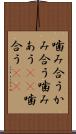 噛み合うか
み合う噛み
あう 噛
合う